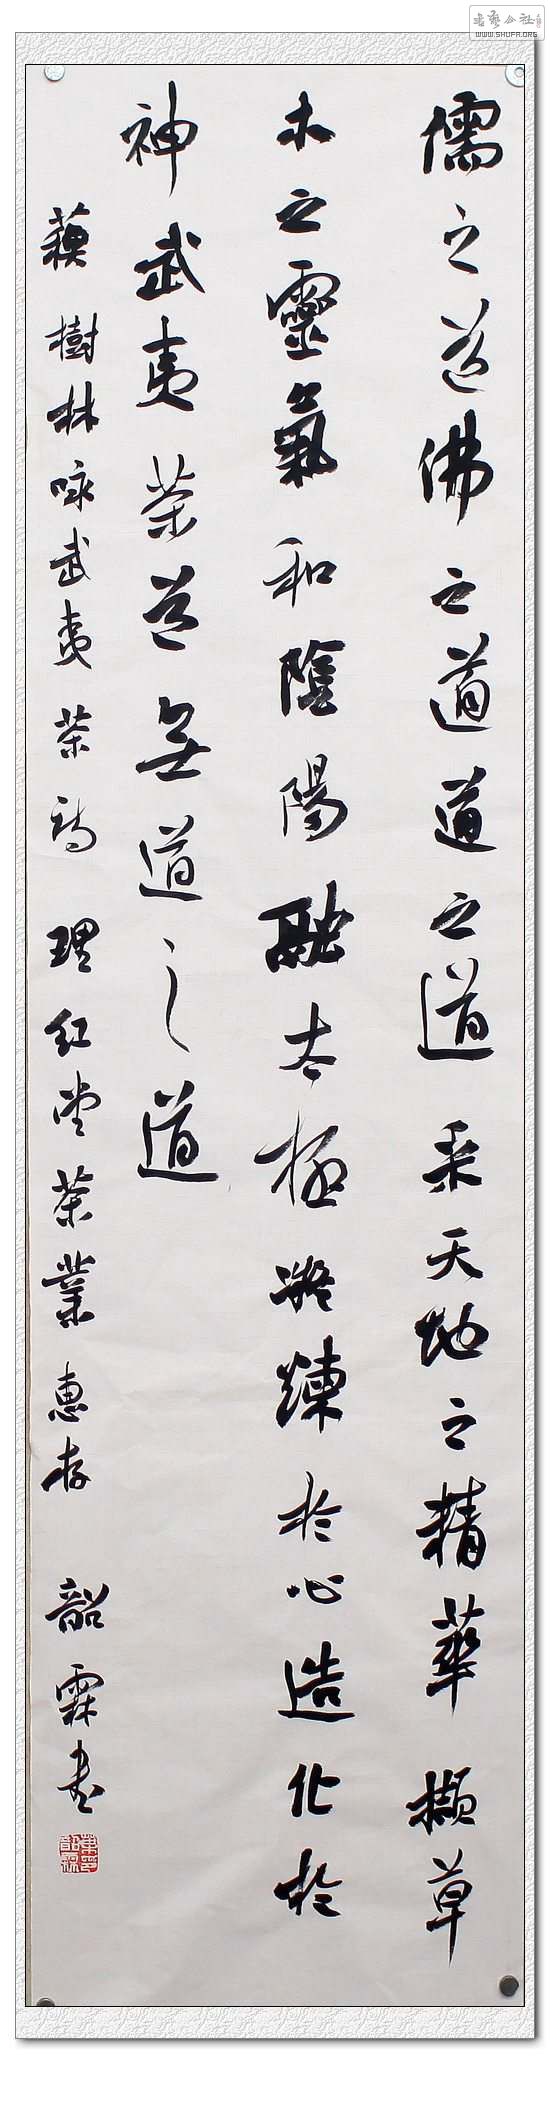 儒之道佛之道道之道采天地之精華擷草
木之靈氣和陰陽融太極凝煉於心造化於
神武夷茶道無道之道
蘇樹林咏武夷茶詩 理紅堂茶業惠存 韶霖書
WWW.SHUFA.ORG